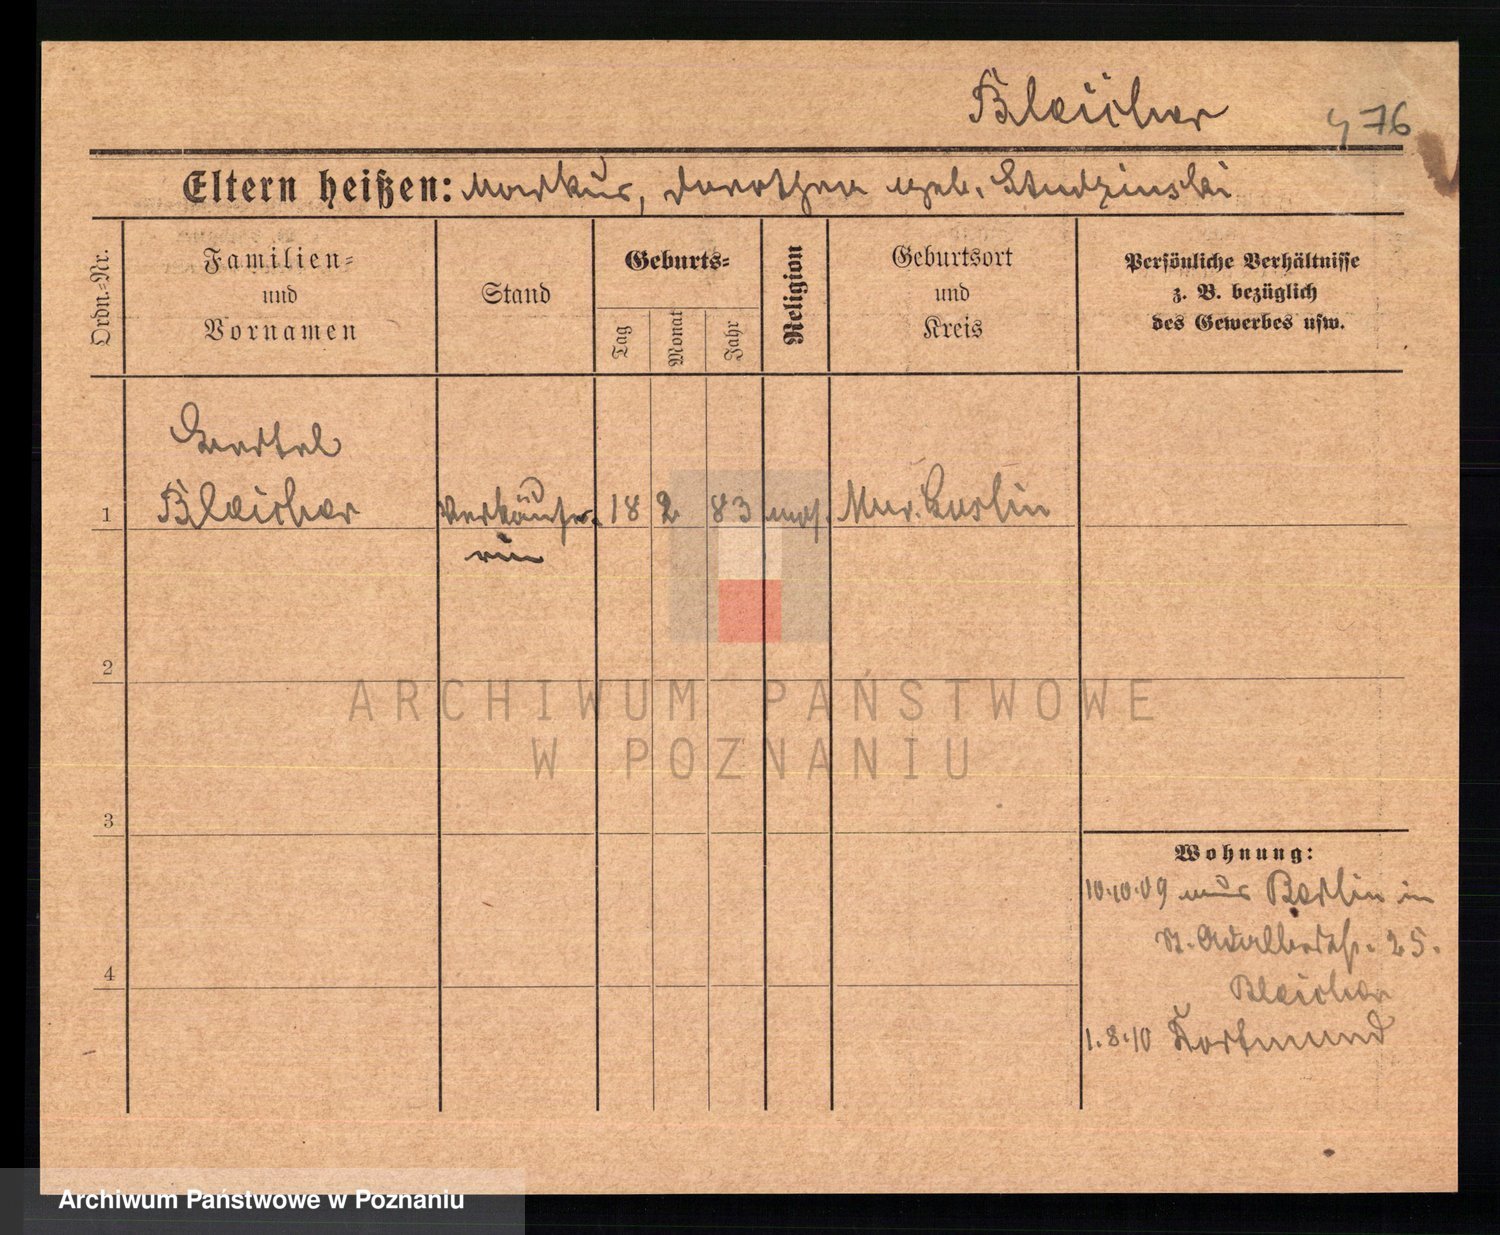 Bleicher
476
Eltern heißen: Markus, Dorothea geb. Studzinski
Ordn.-Nr.
Familien-
und
Vornamen
Stand
Geburts-
Tag
Monat
Jahr
Religion
Geburtsort
und
Kreis
Persönliche Verhältnisse
z. B. bezüglich
des Gewerbes usw.
Bleicher
1
Verkäufe-
rin
18 2 83 mos. Mur. Goslin
2
3
4
Wohnung:
10.10.09 aus Berlin in
St. Adalbertstr. 25.
Bleicher
1.8.10 Dortmund
ARCHIWUM PAŃSTWOWE
W POZNANIU
Archiwum Państwowe w Poznaniu